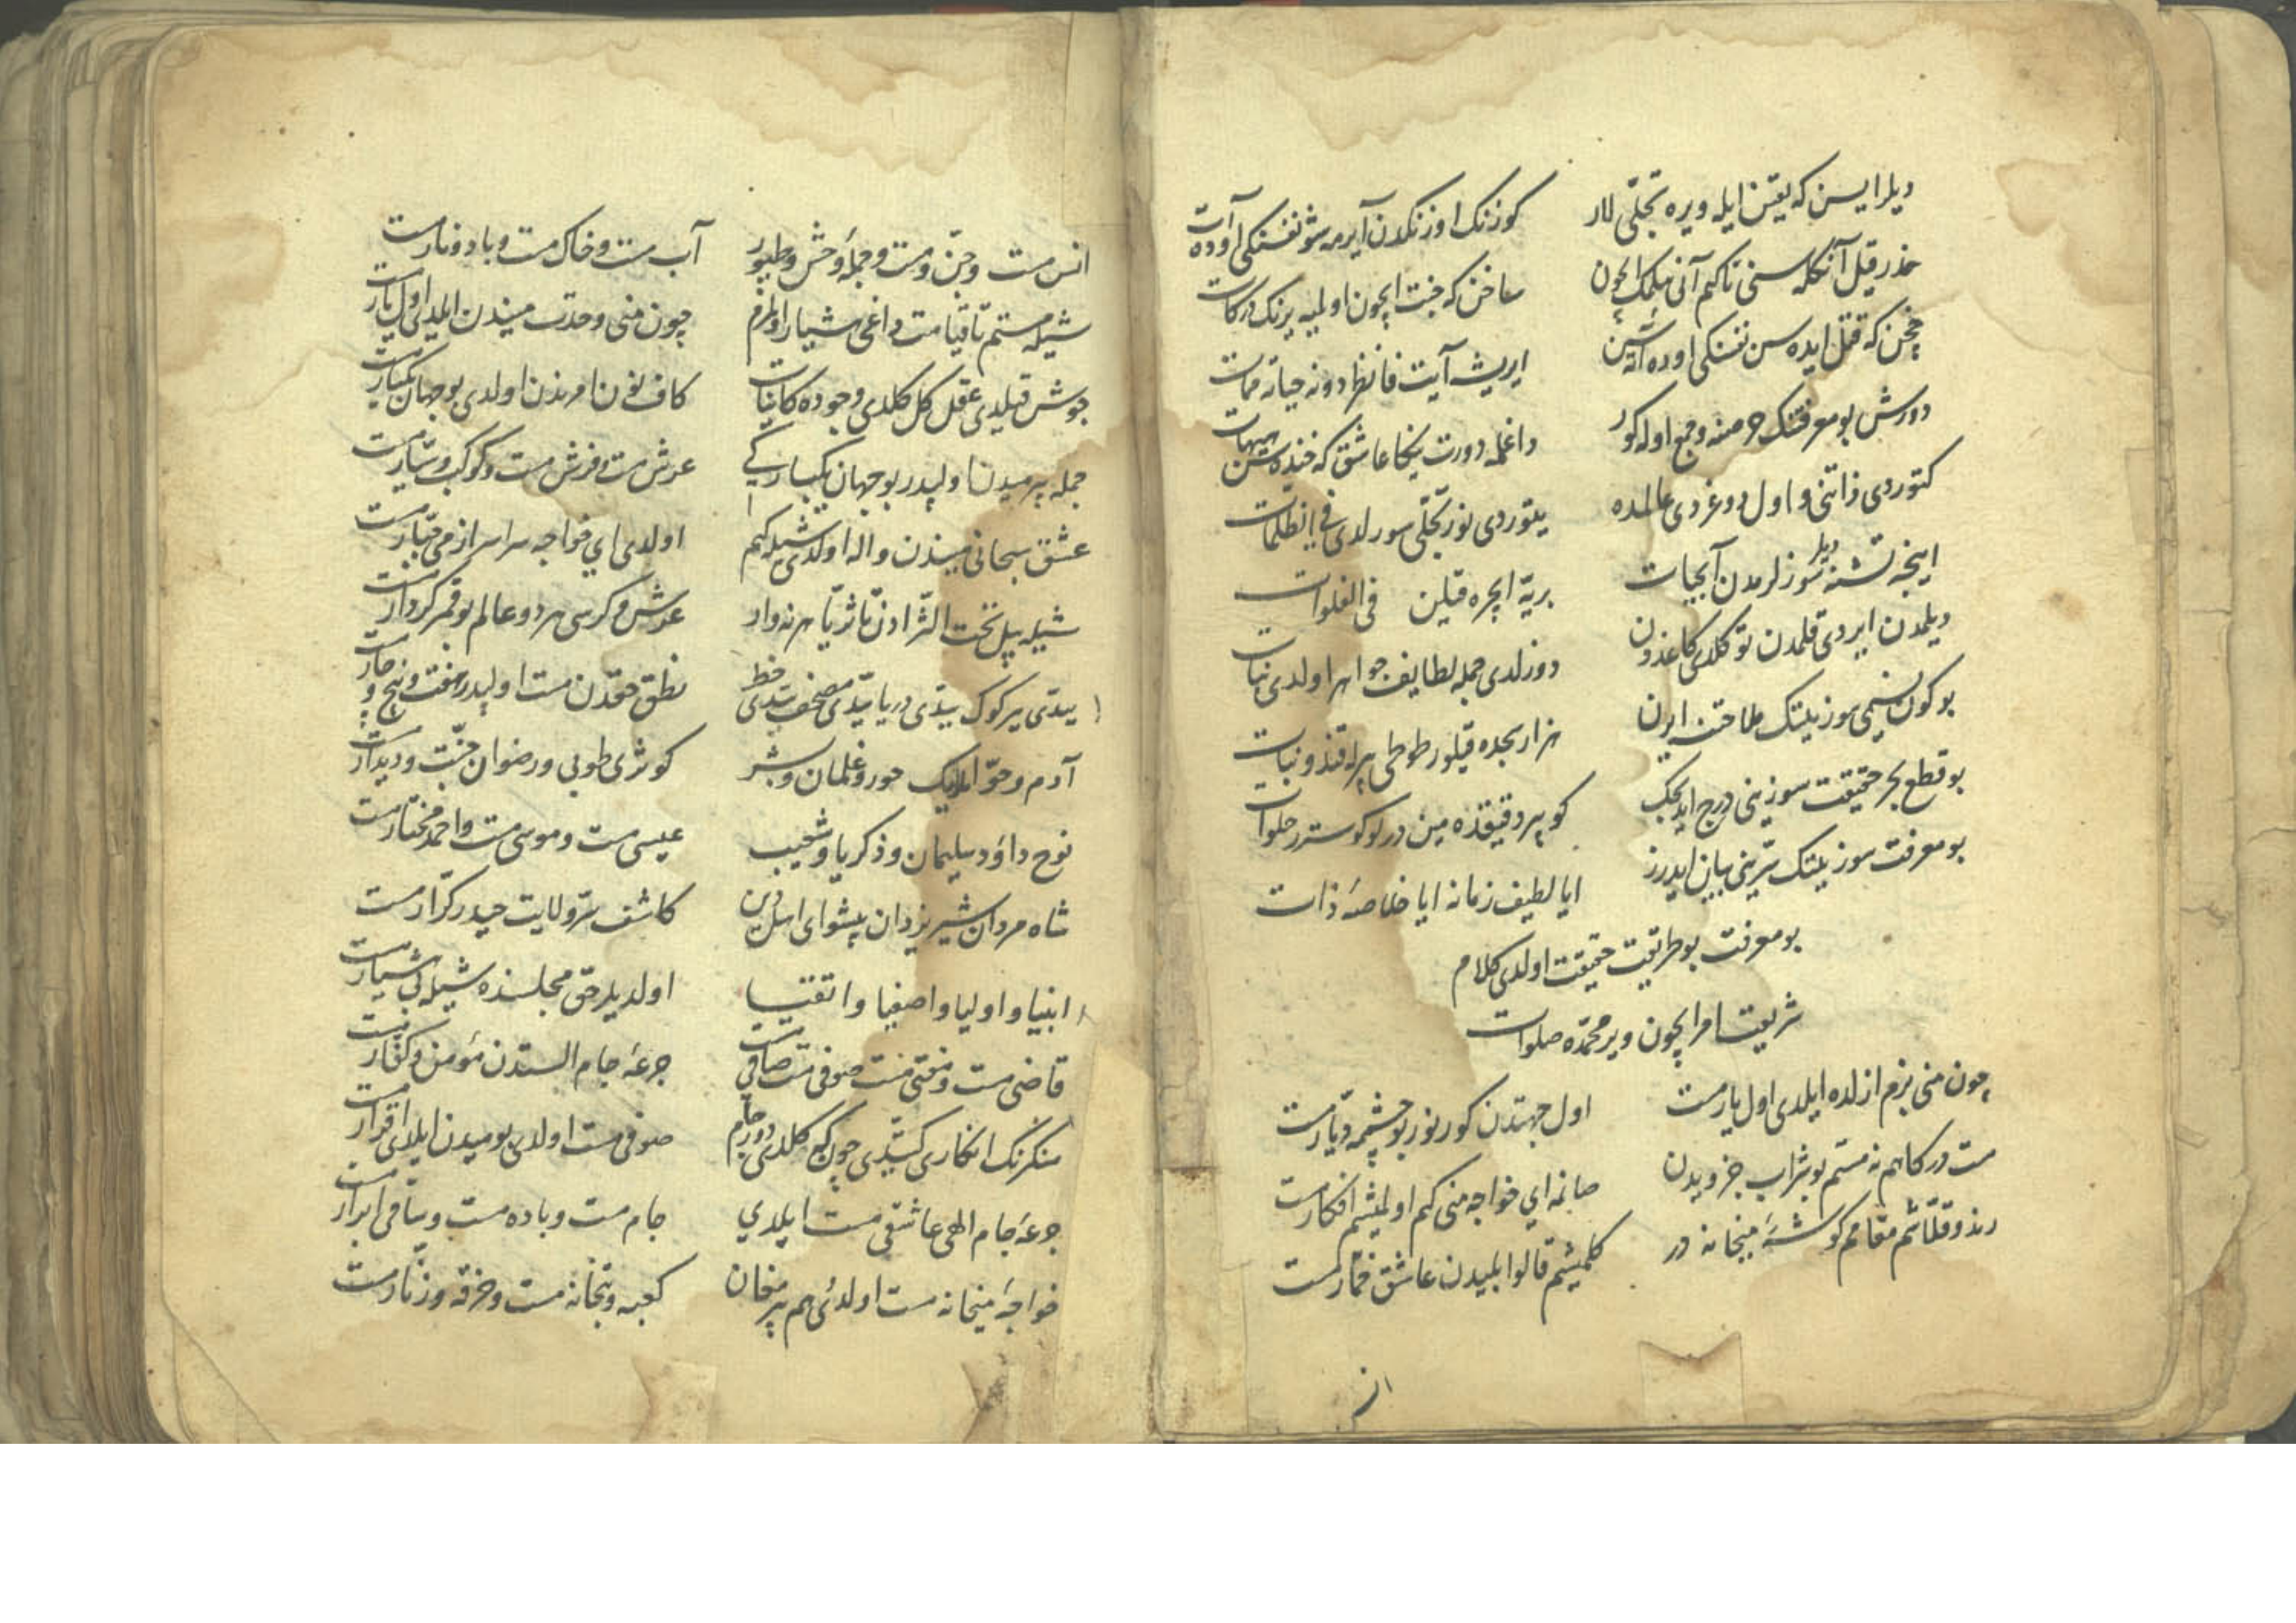 دیلر ایسن که یقین ایله ویره تجلّی للار
کوزنک اوزنکدن آیرمه شو نفسنکی اوده آت
حذر قیل آنکله سنی تا کیم آنی یلمک ایچون
ساخن که جنت ایچون اولمیه یرنک درکات
چخن که قتل ایده سن نفسنکی اوده
ایریشه آیت فانظر دونه حیاته ممات
دورش بو معرفتنک خرمنه وجمع اوله کور
داغله دورت عاشق که خنده هیهات
کتوردی ذاتنی و اول دوغردی عالمده
یتوردی نور تجلّی سورلدی فی الظلمات
ایچه تشنه دیلر سوزلرمدن آبحیات
بریّه ایچره قیلن فی الفلوات
دیلمدن ایردی قلمدن تو کلدی کاغذدن
دوزلدی جمله لطایف جواهر اولدی نبات
بو کون نسیمی سوزینک طاحتنه ایرن
هزار سجده قیلور طوطی پرله قند و نبات
بو قطع بحر حقیقت سوزینی درج ایدیجک
کوپر دقیقه‌ده مین در لو کوستر حلوات
بو معرفت سوزینک سرّینی بیان ایدرز
ایا لطیف زمانه ایا خلاصهٔ ذات
بو معرفت بو طریقت حقیقت اولدی کلام
شریعت امر ایچون ویر محمّده صلوات
چون منی بزم ازلده ایلدی اول یار مست
اول جهتدن کورنور بو چشمه دیّار مست
مست درکاهم نه مستم بو شراب جزویدن
صانمه ای خواجه منی کیم اولمیشم افکار مست
رند و قلّاشم مقامم کوشهٔ میخانه در
کلمیشم قالوا بلیدن عاشق خمّار مست
از
انس مست و جنّ و مست و جملهٔ وحش و طیور
آب مست و خاک مست و باد و نار مست
شیله مستم تا قیامت داغی هشیار اولمزم
چون منی وحدت میندن ایلدی اول یار مست
جوش قیلدی عقل کل کلدی وجوده کاینات
کاف نون امرندن اولدی بو جهان یکبار مست
جمله بیر میدن اولپدر بو جهان یکبارکی
عرش مست و فرش مست و کوکب و سیّار مست
عشق سبحانی میندن واله اولدی شیله کیم
اولدی ای خواجه سراسر از می جبّار مست
شیله بیل تحت الثّرادن تا ثریّا هر نه وار
عرش و کرسی هر دو عالم بو قمر کردار مست
یدّی یر کوک یدّی دریا یدّی مصحف یدّی خط
نطق حقّدن مست اولپدر هفت و پنج و چار مست
آدم و حوّا ملایک حور و غلمان و بشر
کوثری طوبی و رضوان جنّت و دیدار مست
نوح داود سلیمان و ذکریا و شعیب
عیسی مست و موسی مست و احمد مختار مست
شاه مردان شیر یزدان پیشوای اهل دین
کاشف سرّ ولایت حیدر کرّار مست
انبیا و اولیا و اصفیا و اتقیا
اولدیلر حق مجلسنده شیله کی هشیار مست
قاضی مست و مفتی مست صوفی مست صافی مست
جرعهٔ جام الستدن مؤمن و کفّار مست
منکرنک انکاری کیتدی چون کلدی دور جام
صوفی مست اولدی بو میدن ایلدی اقرار مست
جرعهٔ جام الهی عاشقی مست ایلدی
جام مست و باده مست و ساقی ابرار مست
خواجهٔ میخانه مست اولدی هم پیر مغان
کعبه و بتخانه مست و خرقه و زنّار مست